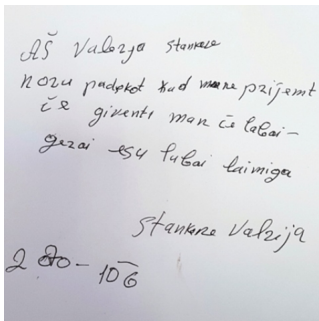 Aš Valerja Stankene
nozu padekot kad mane prijemt
če giventi man če labai-
gerai esu labai laimiga
Stankene Valrija